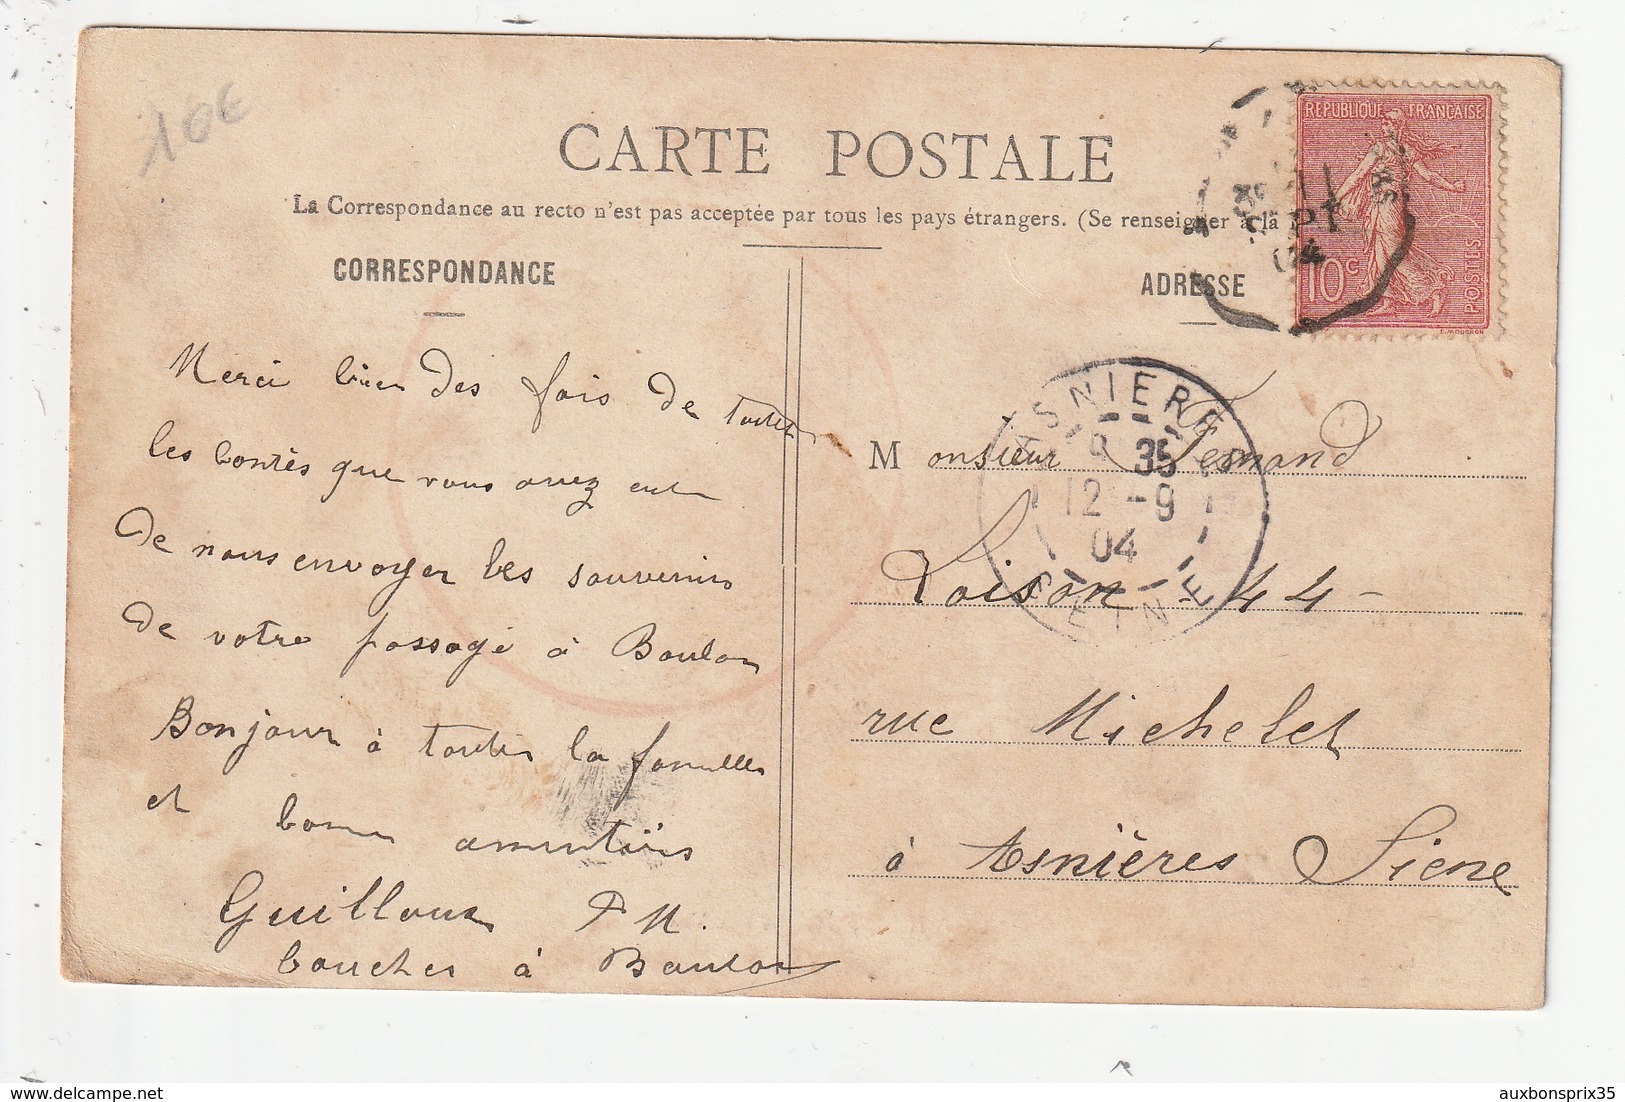 10€
CARTE POSTALE
La Correspondance au recto n'est pas acceptée par tous les pays étrangers. (Se renseigner à la
CORRESPONDANCE
ADRESSE
REPUBLIQUE FRANÇAISE
10c
POSTES
E. MOUCHON
SEPT
04
Merci bien des fois de toutes
les bontés que vous avez eut
de nous envoyer les souvenirs
de votre passage à Baulon
Bonjour à toutes la familles
et bonne amentiés
Guilloux P M.
boucher à Baulon
ASNIERES
8 35
12 -9
04
SEINE
Monsieur Fernand
Loison 44-
rue Michelet
à Asnières Siene
auxbonsprix35